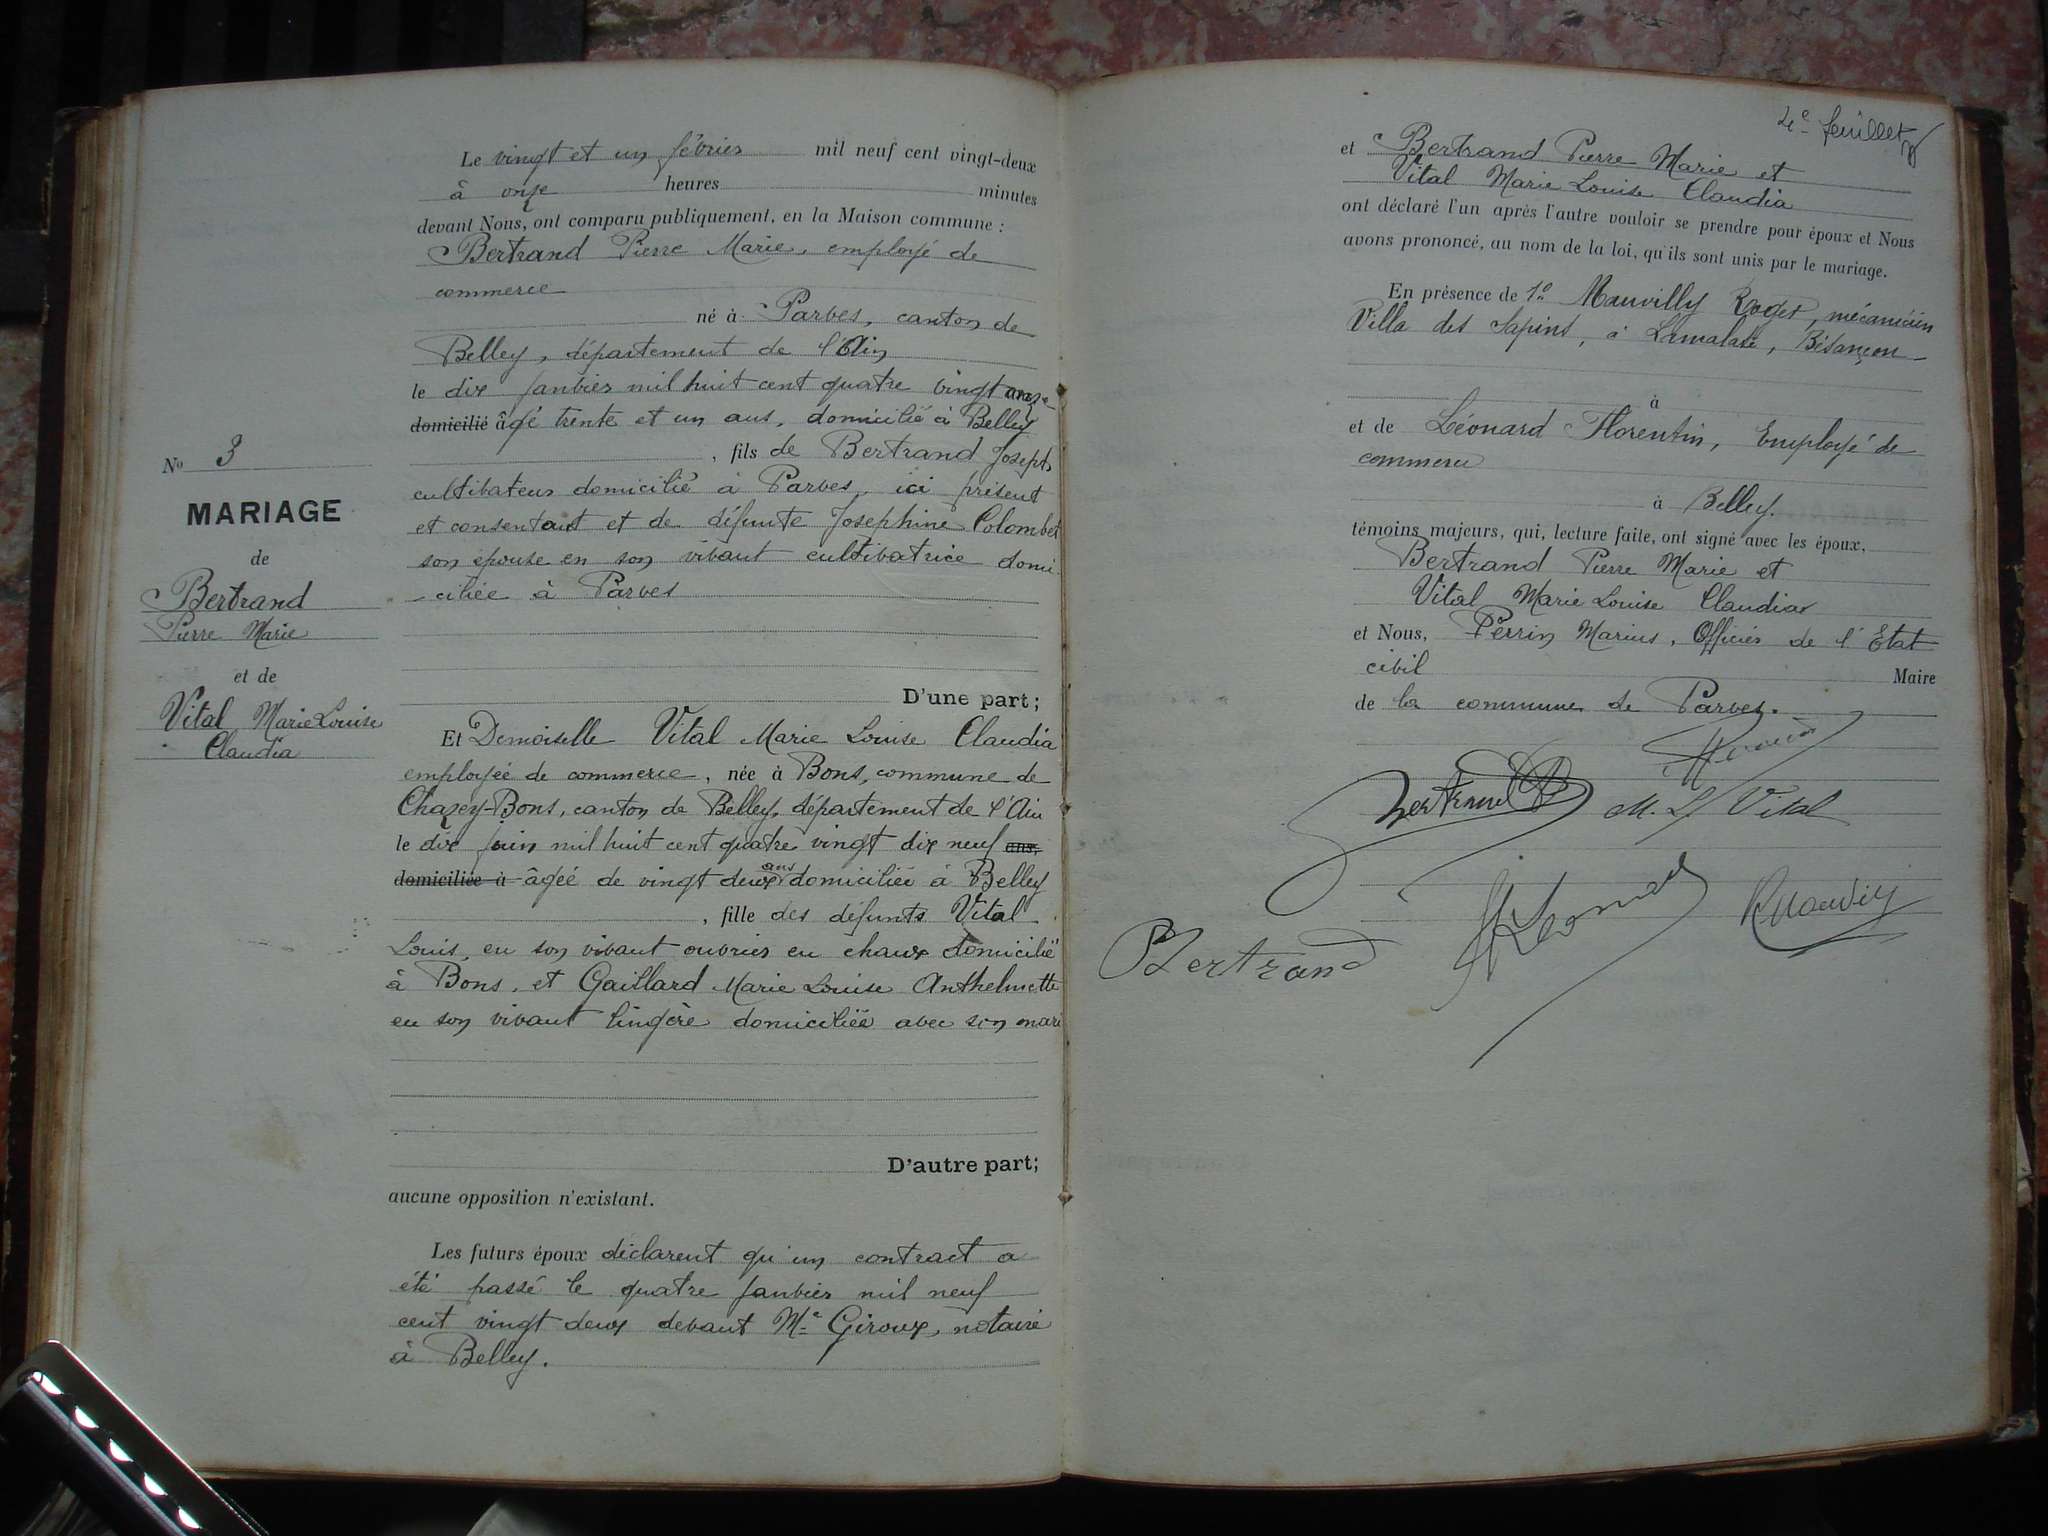 Nº 3
MARIAGE
de
Bertrand
Pierre Marie
et de
Vital Marie Louise
Claudia
Le vingt et un février mil neuf cent vingt-deux
à onze heures minutes
devant Nous, ont comparu publiquement, en la Maison commune :
Bertrand Pierre Marie, employé de
commerce
né à Parves, canton de
Belley, département de l'Ain
le dix janvier mil huit cent quatre vingt onze
domicilié âgé trente et un ans, domicilié à Belley
, fils de Bertrand Joseph
cultivateur domicilié à Parves, ici présent
et consentant et de défunte Josephine Colombet
son epouse en son vivant cultivatrice domi
-ciliée à Parves
D'une part;
Et Demoiselle Vital Marie Louise Claudia
employée de commerce, née à Bons, commune de
Chazey-Bons, canton de Belley, département de l'Ain
le dix juin mil huit cent quatre vingt dix neuf ans,
domiciliée à âgée de vingt deux ans domiciliée à Belley
, fille des défunts Vital
Louis, en son vivant ouvrier en chaux domicilié
à Bons, et Gaillard Marie Louise Anthelmette
en son vivant lingère domiciliée avec son mari
D'autre part;
aucune opposition n'existant.
Les futurs époux déclarent qu'un contract a
été passé le quatre janvier mil neuf
cent vingt deux devant Me Giroux, notaire
à Belley.
4e feuillet
et Bertrand Pierre Marie et
Vital Marie Louise Claudia
ont déclaré l'un après l'autre vouloir se prendre pour époux et Nous
avons prononcé, au nom de la loi, qu'ils sont unis par le mariage.
En présence de 1º Mauvilly Roger, mécanicien
Villa des Sapins, à Besançon
à
et de Léonard Florentin, Employé de
commerce
à Belley.
témoins majeurs, qui, lecture faite, ont signé avec les époux,
Bertrand Pierre Marie et
Vital Marie Louise Claudia
et Nous, Perrin Marius, Officier de l'Etat
civil Maire
de la commune de Parves.
Bertrand M. L. Vital
Bertrand Léonard R Mauvilly